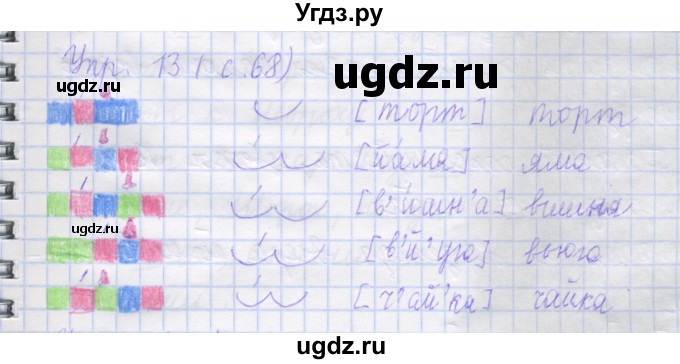 Угдз.ру
Упр. 13 (с.68)
ugdz.ru
[торт] торт
ugdz.ru
[йáма] яма
[в'ишн'а] вишня
ugdz.ru
[в'й'уга] вьюга
[ч'ай'ка] чайка
ugdz.ru
ugdz.ru